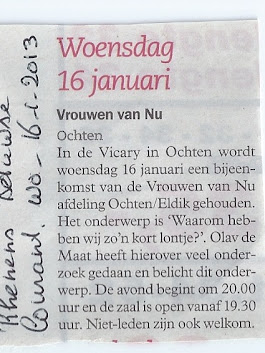 Woensdag
16 januari
Vrouwen van Nu
Ochten
In de Vicary in Ochten wordt
woensdag 16 januari een bijeen-
komst van de Vrouwen van Nu
afdeling Ochten/Eldik gehouden.
Het onderwerp is ‘Waarom heb-
ben wij zo’n kort lontje?’. Olav de
Maat heeft hierover veel onder-
zoek gedaan en belicht dit onder-
werp. De avond begint om 20.00
uur en de zaal is open vanaf 19.30
uur. Niet-leden zijn ook welkom.
Rhenens Betuwse
Courant. wo - 16-1-2013